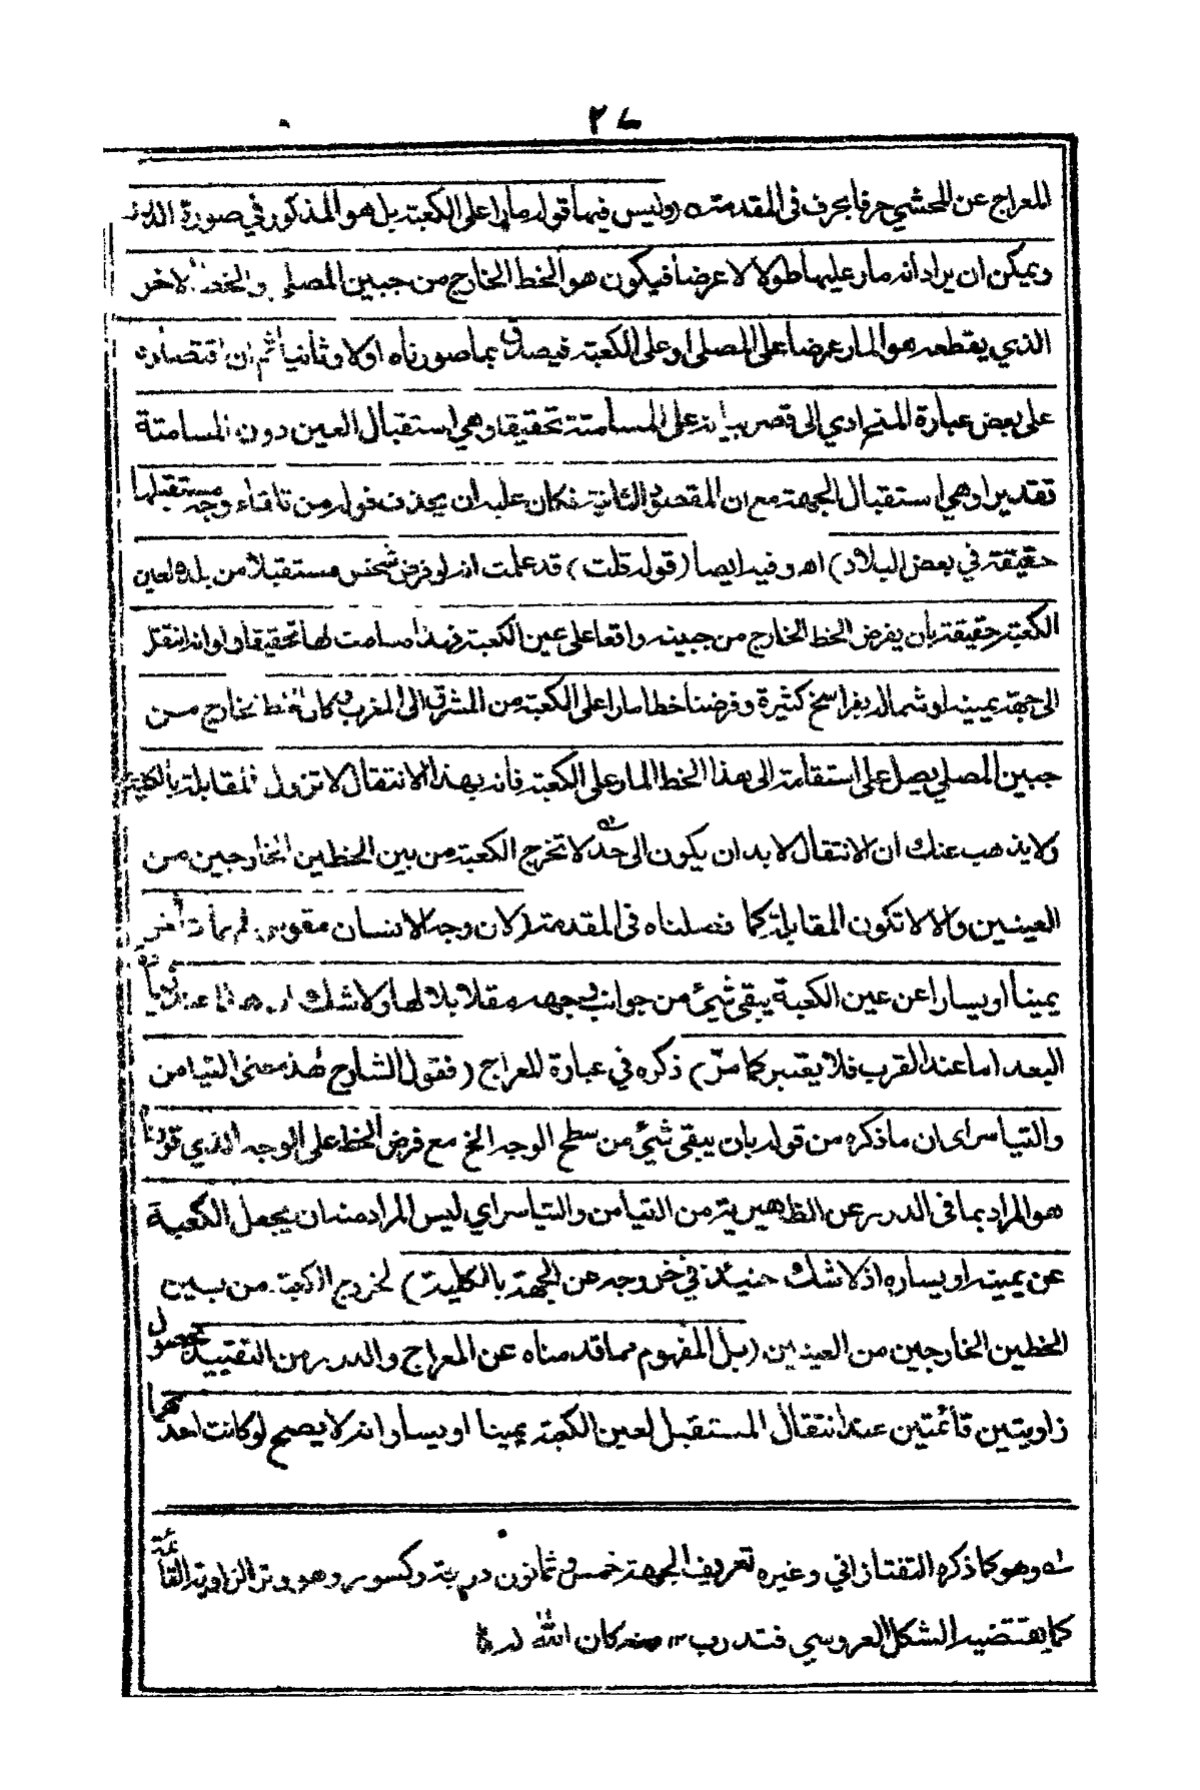 ٢٧
المعراج عن المحشي حرفا بحرف فى المقدمة (وليس فيها قوله مارا على الكعبة بل هو المذكور في صورة الدرر
ويمكن ان يراد انه مار عليها طولا لا عرضا فيكون هو الخط الخارج من جبين المصلى والخط الاخر
الذي يقطعه هو المار عرضا على المصلى او على الكعبة فيصدق بما صورناه اولا وثانيا ثم ان اقتصاره
على بعض عبارة المنح ادي الى قصر بيانه على المسامتة تحقيقا وهي استقبال العين دون المسامتة
تقديرا وهي استقبال الجهة مع ان المقصود الثانية فكان عليه ان يحذف قوله من تلقاء وجه مستقبلها
حقيقة في بعض البلاد) اه وفيه ايضا (قوله قلت) قد علمت انه لو فرض شخص مستقبلا من بلده لعين
الكعبة حقيقة بان يفرض الخط الخارج من جبينه واقعا على عين الكعبة فهذا مسامت لها تحقيقا ولو انه انتقل
الى جهة يمينه او شماله بفراسخ كثيرة وفرضنا خطا مارا على الكعبة من المشرق الى المغرب وكان الخط الخارج من
جبين المصلي يصل على استقامة الى هذا الخط المار على الكعبة فانه بهذا الانتقال لا تزول المقابلة بالكلية
ولا يذهب عنك ان الانتقال لا بد ان يكون الى حد لا تخرج الكعبة من بين الخطين الخارجين من
العينين والا لا تكون المقابلة كما فصلناه فى المقدمة (لان وجه الانسان مقوس
يمينا او يسارا عن عين الكعبة يبقى شئ من جوانب وجهه مقابلا لها ولا شك ان هذا عند
البعد اما عند القرب فلا يعتبر كما مرّ) ذكره في عبارة المعراج (فقول الشارح هذا معنى التيامن
والتياسر اى ان ما ذكره من قوله بان يبقى شئ من سطح الوجه الخ مع فرض الخط على الوجه الذي قررناه
هو المراد بما فى الدرر عن الظاهيرية من التيامن والتياسر اي ليس المراد منه ان يجعل الكعبة
عن يمينه او يساره اذ لا شك حنيئذ في خروجه عن الجهة بالكلية) لخروج الكعبة من بين
الخطين الخارجين من العينين (بل المفهوم مما قدمناه عن المعراج والدرر من التقييد بحصول
زاويتين قائمتين عند انتقال المستقبل لعين الكعبة يمينا او يسارا انه لا يصح لو كانت احدهما
له وهو كما ذكره التفتازاني وغيره تعريف الجهة خمس وثمانون درجة وكسور وهو وتر الزاوية القائمة
كما يقتضيه الشكل العروسي فتدرب ١٢ منه كان الله له